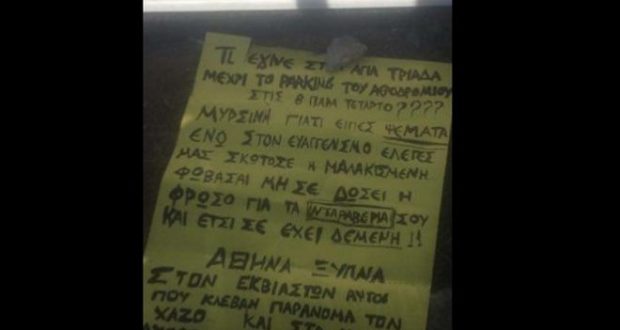 ΤΙ ΕΓΙΝΕ ΣΤΗΝ ΑΓΙΑ ΤΡΙΑΔΑ
ΜΕΧΡΙ ΤΟ PARKING ΤΟΥ ΑΕΡΟΔΡΟΜΙΟΥ
ΣΤΙΣ 8 ΠΑΜ ΤΕΤΑΡΤΟ????
ΜΥΡΣΙΝΗ ΓΙΑΤΙ ΕΙΠΕΣ ΨΕΜΑΤΑ
ΕΝΩ ΣΤΟΝ ΕΥΑΓΓΕΝΙΣΜΟ ΕΛΕΓΕΣ
ΜΑΣ ΣΚΟΤΩΣΕ Η ΜΑΛΑΚΙΣΜΕΝΗ
ΦΩΒΑΣΑΙ ΜΗ ΣΕ ΔΩΣΕΙ Η
ΦΡΩΣΟ ΓΙΑ ΤΑ ΝΤΑΡΑΒΕΡΙΑ ΣΟΥ
ΚΑΙ ΕΤΣΙ ΣΕ ΕΧΕΙ ΔΕΜΕΝΗ!!
ΑΘΗΝΑ ΞΥΠΝΑ
ΣΤΟΝ ΕΚΒΙΑΣΤΩΝ ΑΥΤΟΙ
ΠΟΥ ΚΛΕΒΑΝ ΠΑΡΑΝΟΜΑ ΤΟΝ
ΧΑΖΟ ΚΑΙ